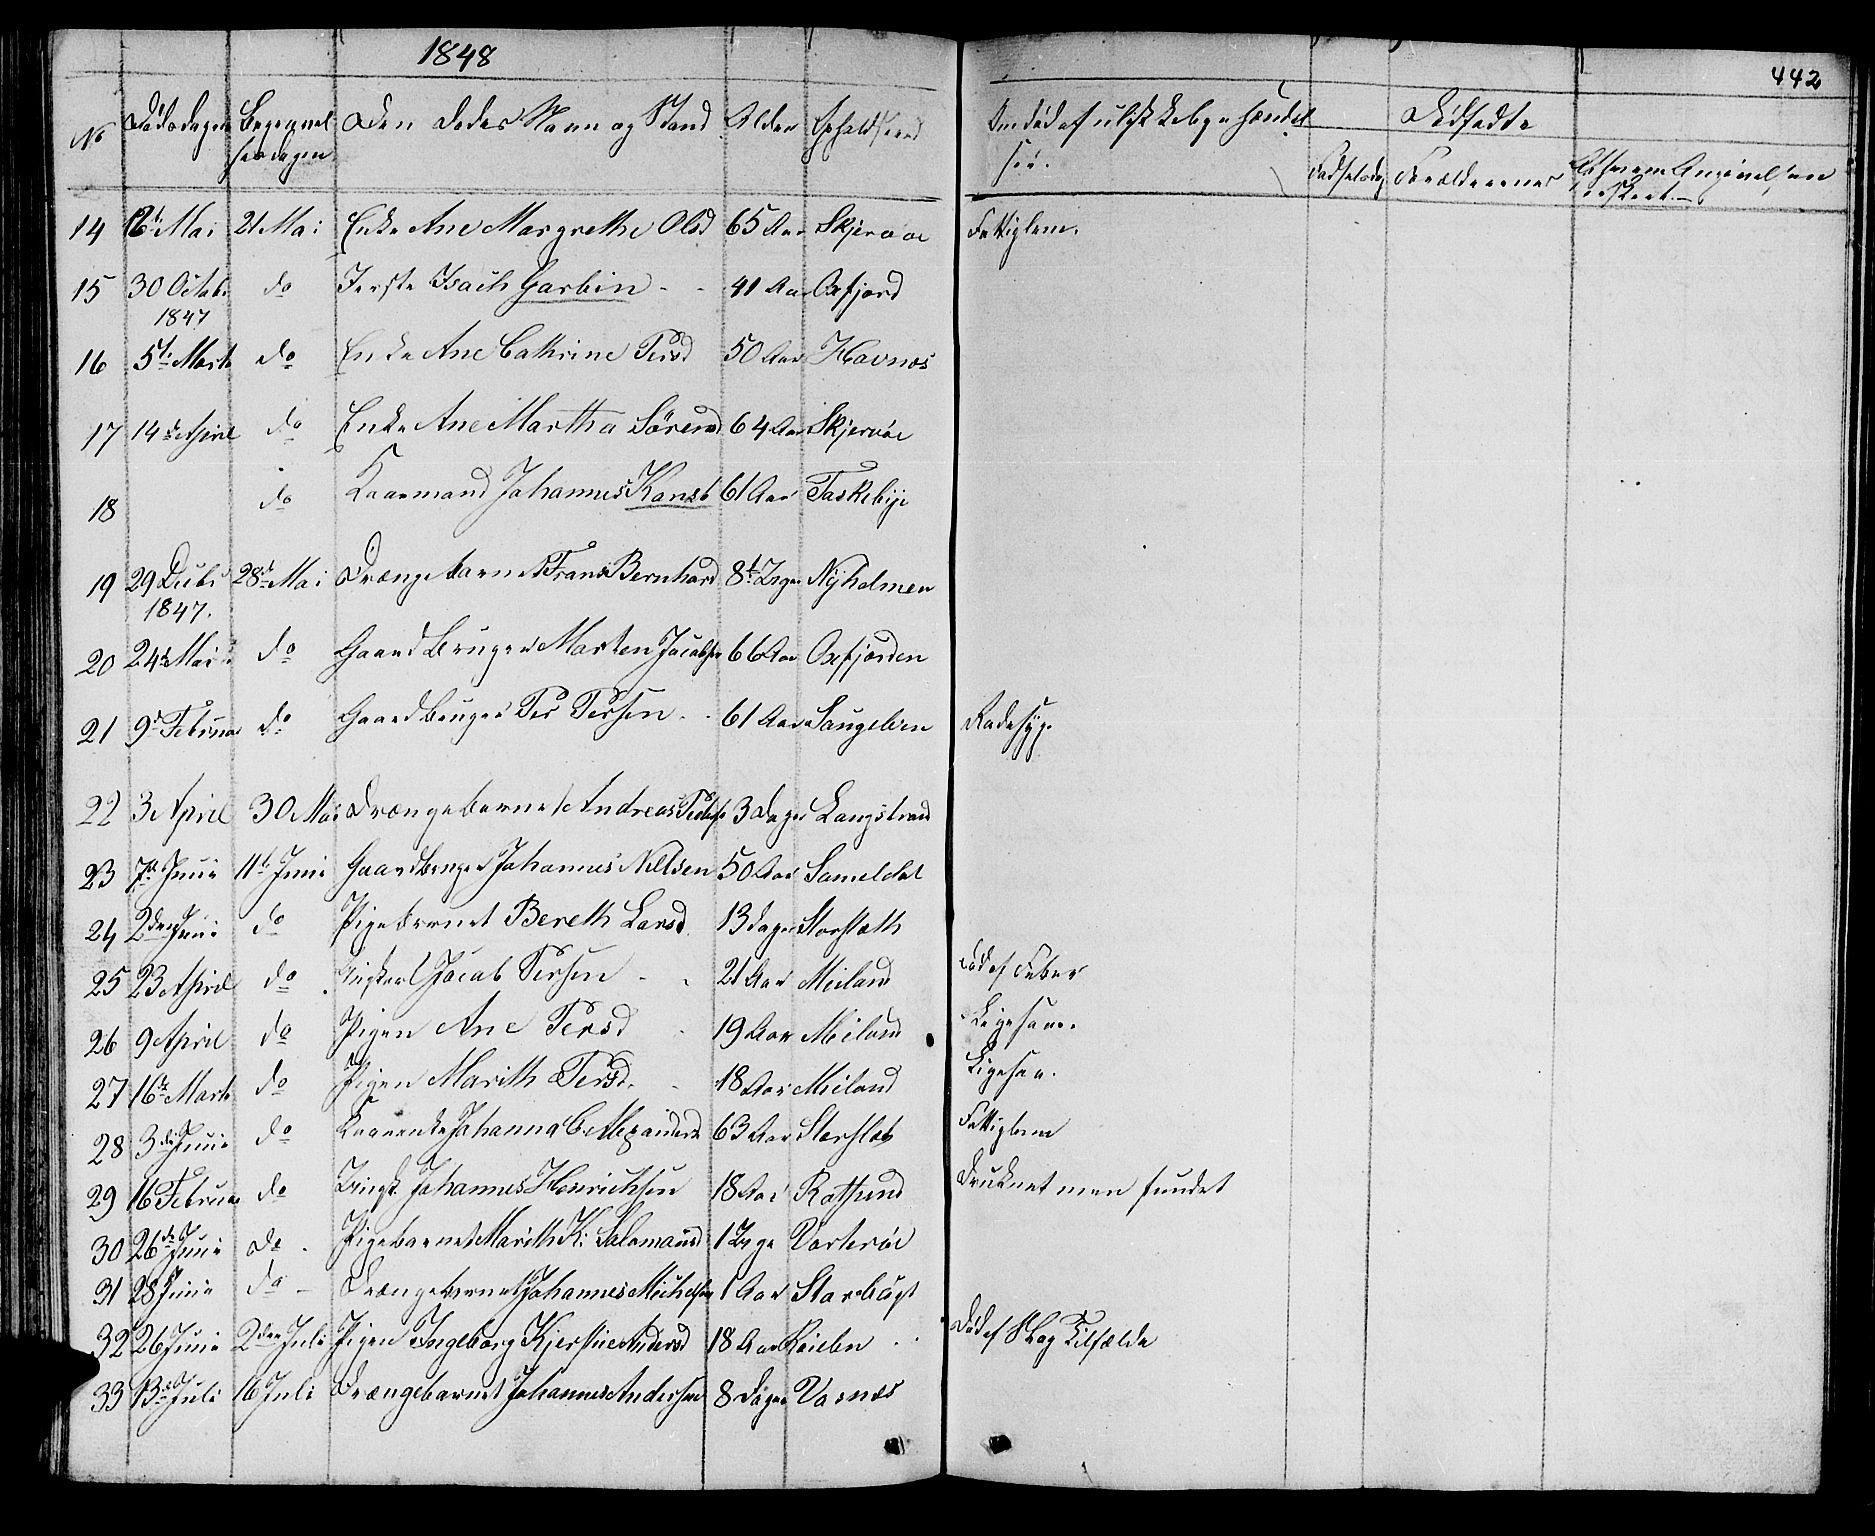 1848
442
No Dødsdagen Begravelsesdagen Den Dødes Navn og Stand Alder Opholdssted Om død af ulykkelige Hændelser. Dødfødte
Fødselsdag Forældrenes
14 6te Mai 21 Mai Enke Ane Margrethe Olsd 65 Aar Skjervøe Fattiglem.
15 30 Octobr 1847 do Isach Garbin - - 41 Aar Oxfjord
16 5te Marts do Enke Ane Cathrine Persd 50 Aar Havnæs
17 14de April do Enke Ane Martha Sørensd 64 Aar Skjervøe
18 do Kaarmand Johannes Hansen 61 Aar Taskebye
19 29 Decbr 1847. 28de Mai Drængebarnet Frans Bernhard 8te Uger Nyholmen
20 24de Marts do Gaardbruger Morten Jacobsen 66 Aar Oxfjorden
21 9de Februar do Gaardbruger Per Persen - - 61 Aar Saugelven Radesyg.
22 3 April 30 Mai Drængebarnet Andreas Pedersen 3 Dager Langstrand
23 7de Juni 11te Juni Gaardbruger Johannes Nielsen 50 Aar Sameldal
24 2den Juni do Pigebarnet Bereth Larsd 13 Dager Storslæth
25 23 April do Jacob Persen - - 21 Aar Meiland Død af Feber
26 9 April do Pigen Ane Persd - 19 Aar Meiland Ligesaa.
27 16de Marts do Pigen Marith Persd. - 18 Aar Meiland Ligesaa.
28 3die Juni do Kaarenke Johanna C. Alexandersd 63 Aar Storslet Fattiglem
29 16 Februar do Johannes Henrichsen 18 Aar Rotsund Druknet men fundet
30 26de Juni do - Pigebarnet Marith K: Salamonsd 1 Uge Vorterøe
31 28 Juni do - Drængebarnet Johannes Michelsen 1 Aar Storbugt
32 26 Juni 2den Juli Pigen Ingeborg Kjerstine Andersd 18 Aar Reielen Død af Slag Tilfælde
33 13de Juli 16 Juli Drængebarnet Johannes Andersen 8 Dager Vasnæs